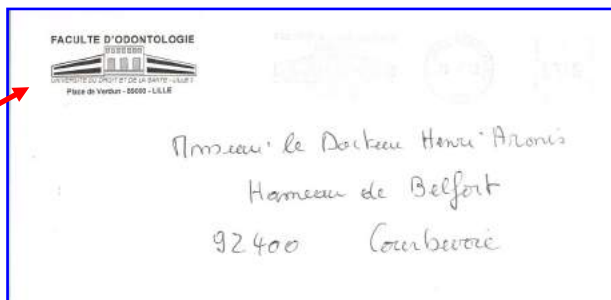 FACULTE D'ODONTOLOGIE
UNIVERSITE DU DROIT ET DE LA SANTE - LILLE 2
Place de Verdun - 59000 - LILLE
Monsieur le Docteur Henri Aronis
Hameau de Belfort
92400 Courbevoie